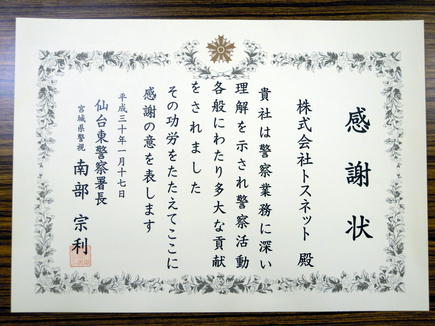 感謝状
株式会社トスネット 殿
貴社は警察業務に深い
理解を示され警察活動
各般にわたり多大な貢献
をされました
その功労をたたえてここに
感謝の意を表します
平成三十年一月十七日
仙台東警察署長
宮城県警視 南部宗利